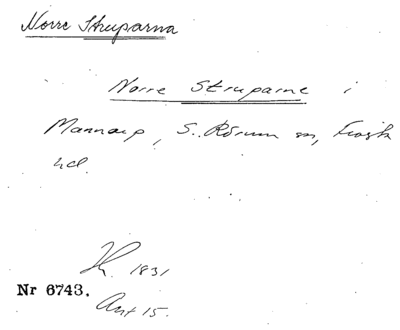 Norre Struparna
Norre Struparne i
Mannarp, S. Rörum sn, Frosta
hd.
Lk. 1831
Nr 6743.
Akt 15.